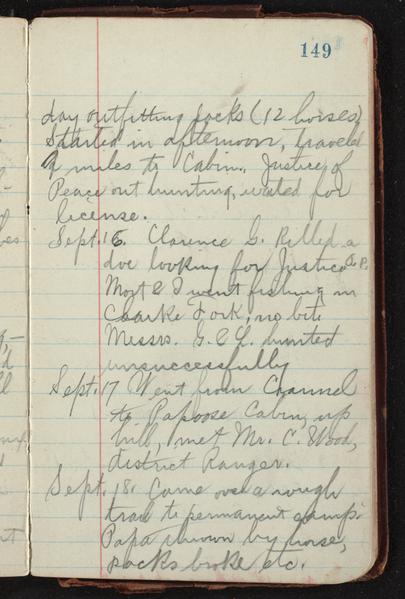 149
day outfitting packs (12 horses)
Started in afternoon, traveled
9 miles to Cabin. Justice of
Peace out hunting, waited for
license.
Sept. 16. Clarence G. Killed a
doe looking for Justice
Mort & I went fishing in
Clarke Fork, no bite
Messrs. G. & L. hunted
unsuccessfully
Sept. 17 Went from Channel
to Papoose Cabin, up
hill, met Mr. C. Wood,
district Ranger.
Sept. 18. Came over a rough
trail to permanent camp.
Papa thrown by horse,
packs broke etc.